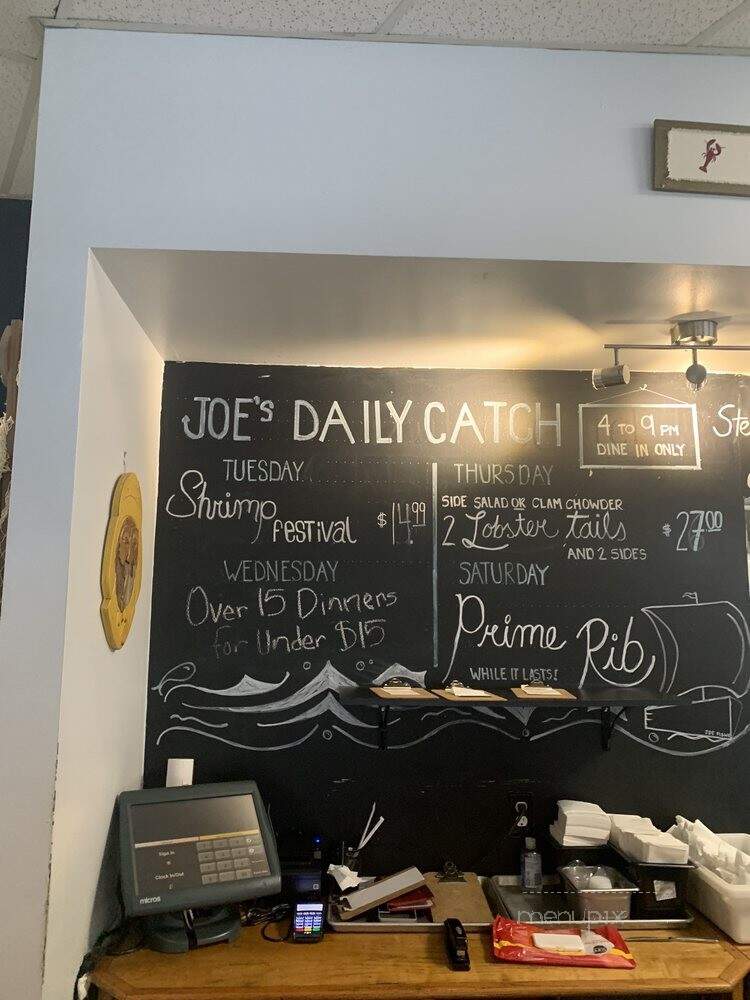 JOE'S DAILY CATCH
4 TO 9 PM
DINE IN ONLY
Ste
TUESDAY
Shrimp FESTIVAL $14.99
WEDNESDAY
Over 15 Dinners
For Under $15
THURSDAY
SIDE SALAD OR CLAM CHOWDER
2 Lobster tails $27.00
AND 2 SIDES
SATURDAY
Prime Rib
WHILE IT LASTS!
Sign In
Clock In/Out
micros
menupix